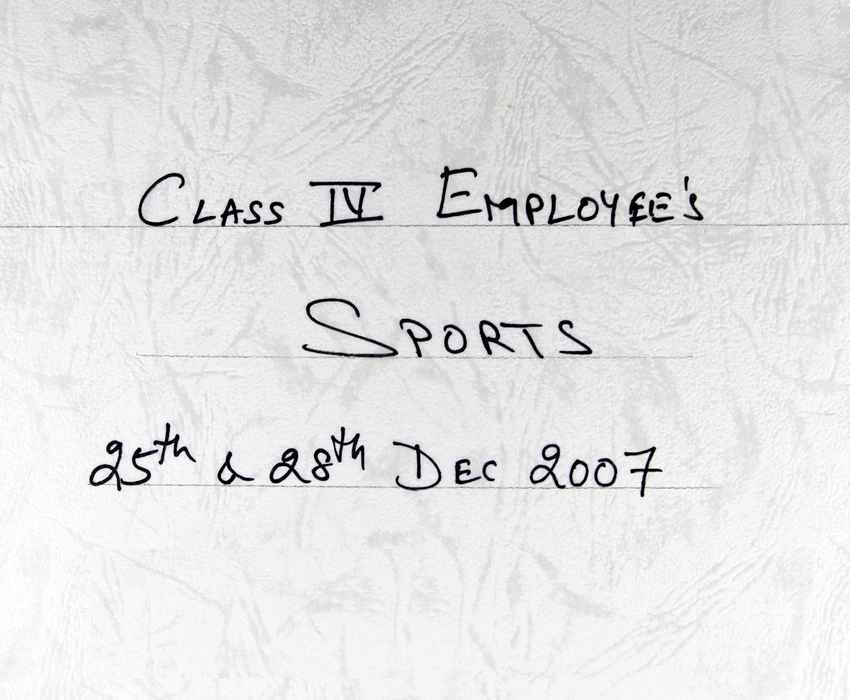 CLASS IV EMPLOYEE'S
SPORTS
25th & 28th DEC 2007